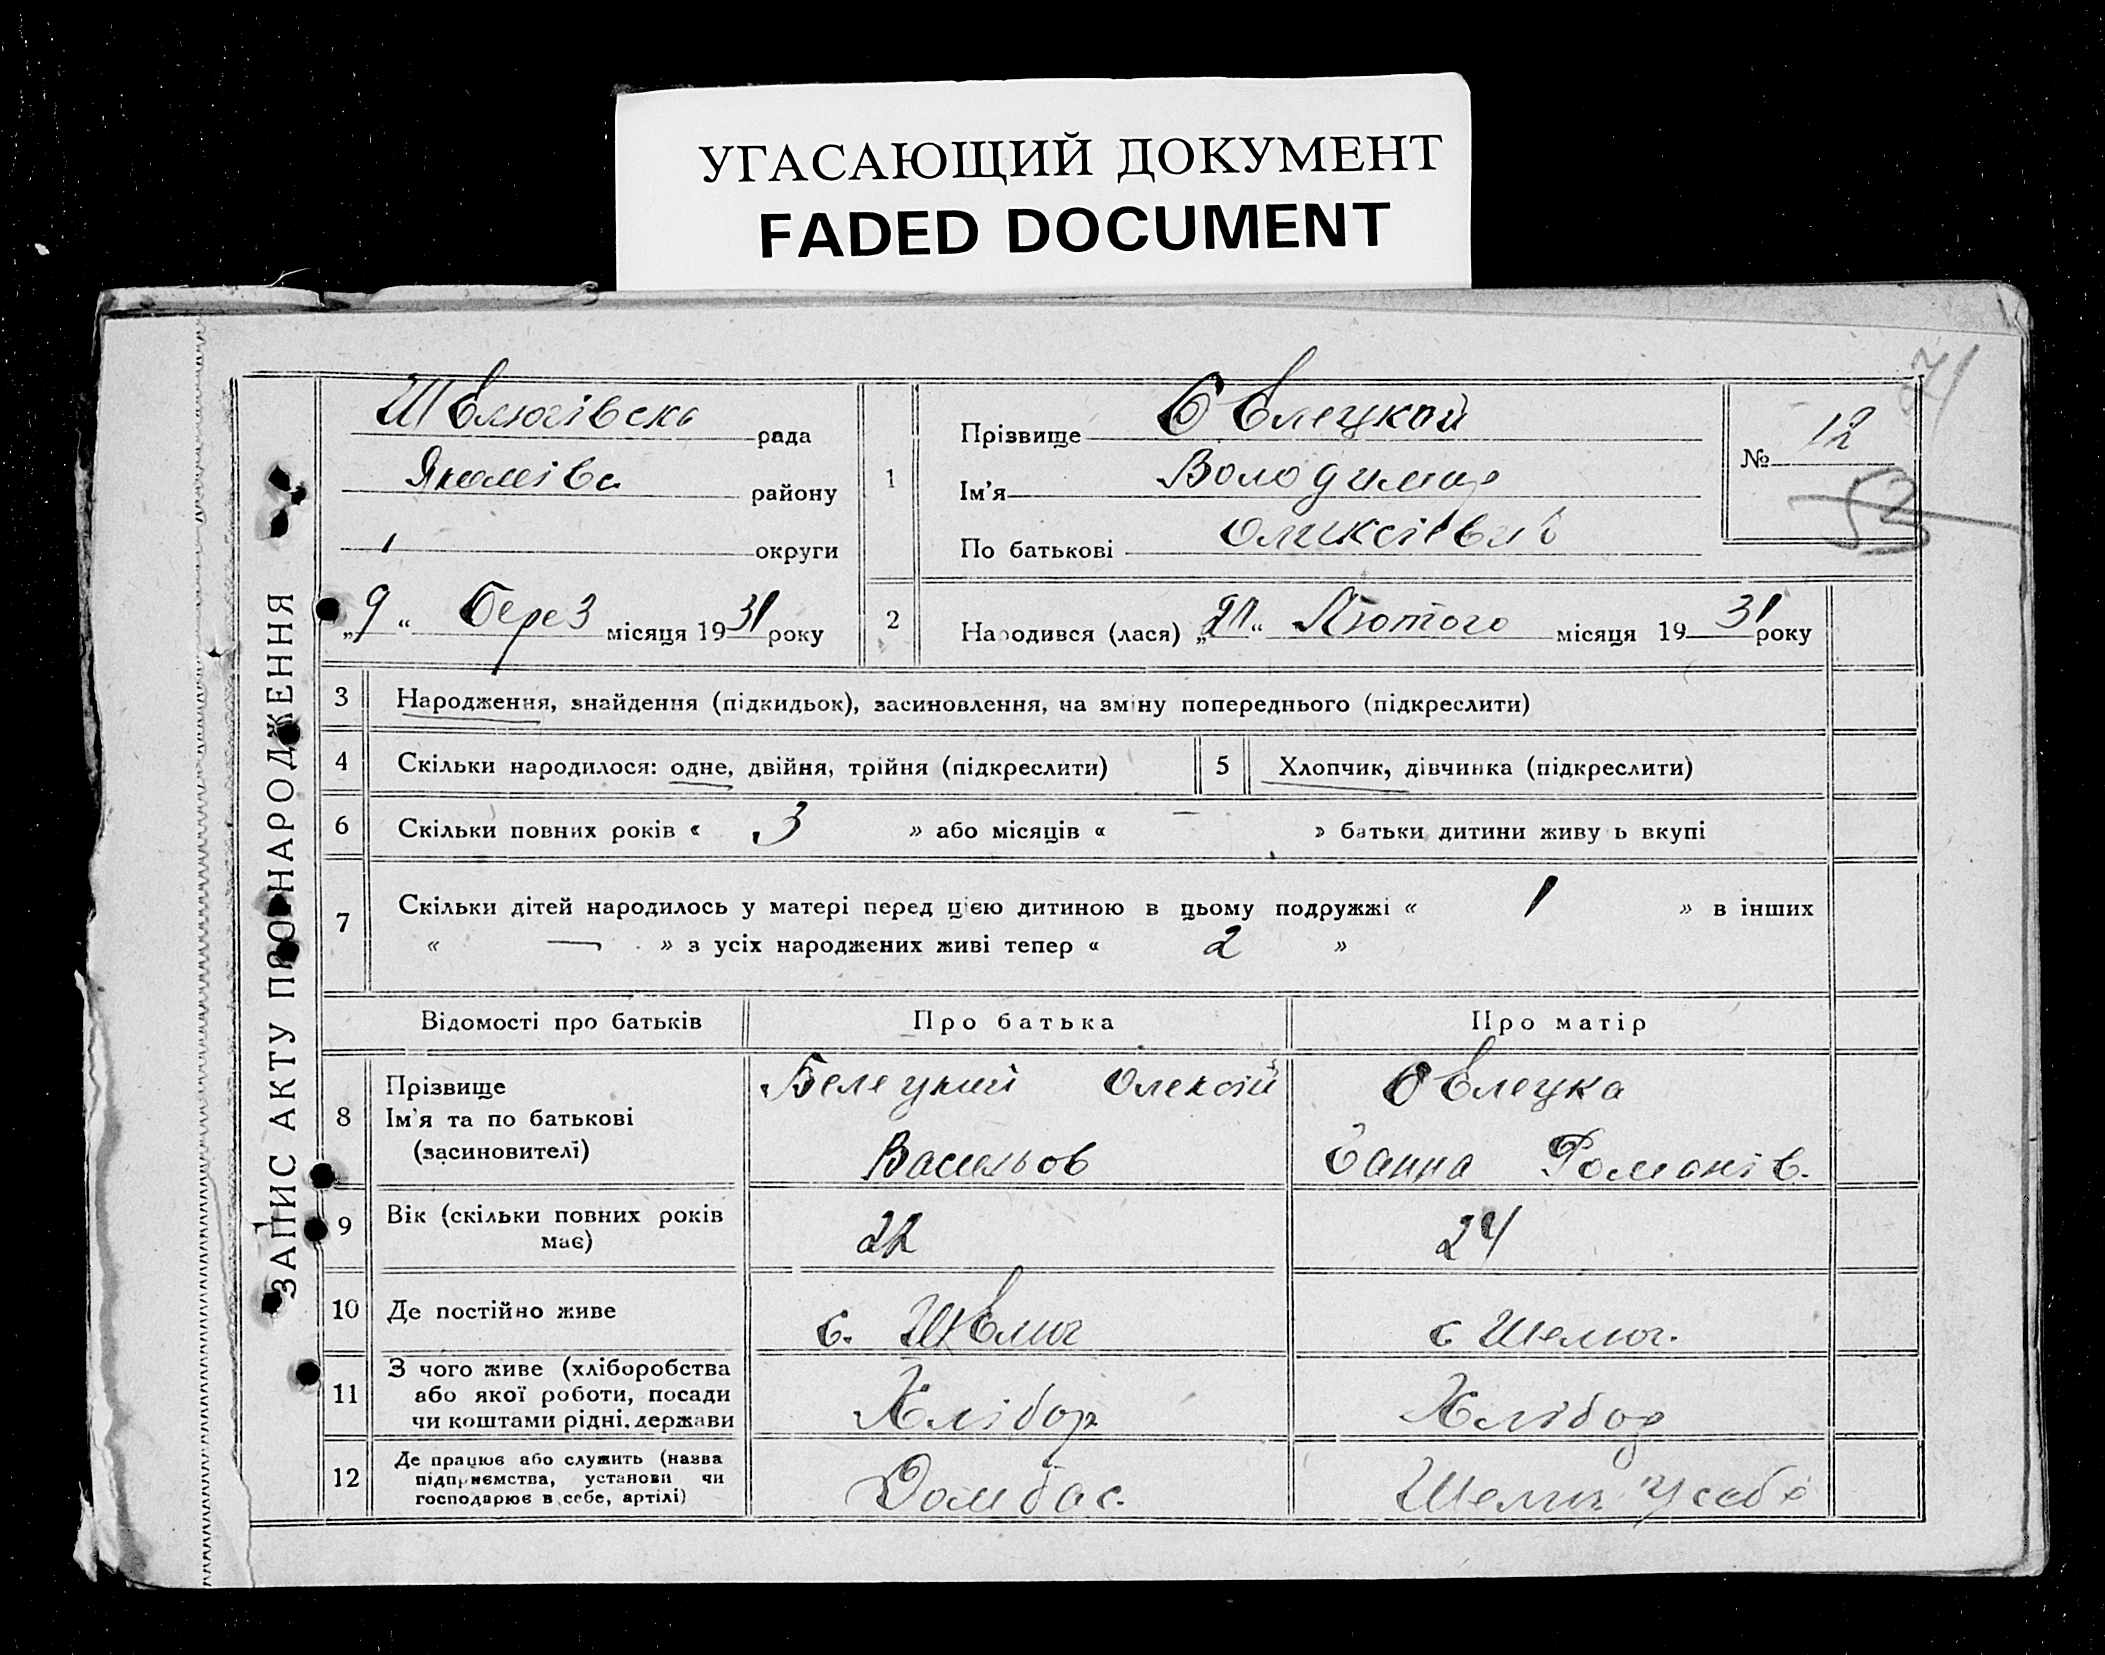 УГАСАЮЩИЙ ДОКУМЕНТ
FADED DOCUMENT
ЗАПИС АКТУ ПРО НАРОДЖЕННЯ
рада
району
округи
„9“ Берез місяця 1931 року
1
Прізвище
Ім'я Володимир
По батькові
№ 12
53
71
2
Народився (лася) „ “ Лютого місяця 1931 року
3 Народження, знайдення (підкидьок), засиновлення, на зміну попереднього (підкреслити)
4 Скільки народилося: одне, двійня, трійня (підкреслити)
5 Хлопчик, дівчинка (підкреслити)
6 Скільки повних років « 3 » або місяців « — » батьки дитини живуть вкупі
7 Скільки дітей народилось у матері перед цією дитиною в цьому подружжі « 1 » в інших
« — » з усіх народжених живі тепер « 2 »
Відомості про батьків Про батька Про матір
8 Прізвище
Ім'я та по батькові
(засиновителі)
Белецкий Олексій
Васильов
Ганна Романів.
9 Вік (скільки повних років
має)
22 24
10 Де постійно живе
11 З чого живе (хліборобства
або якої роботи, посади
чи коштами рідні, держави
Хлібор Хлібор
12 Де працює або служить (назва
підприємства, установи чи
господарює в себе, артілі)
Домбас. у себе